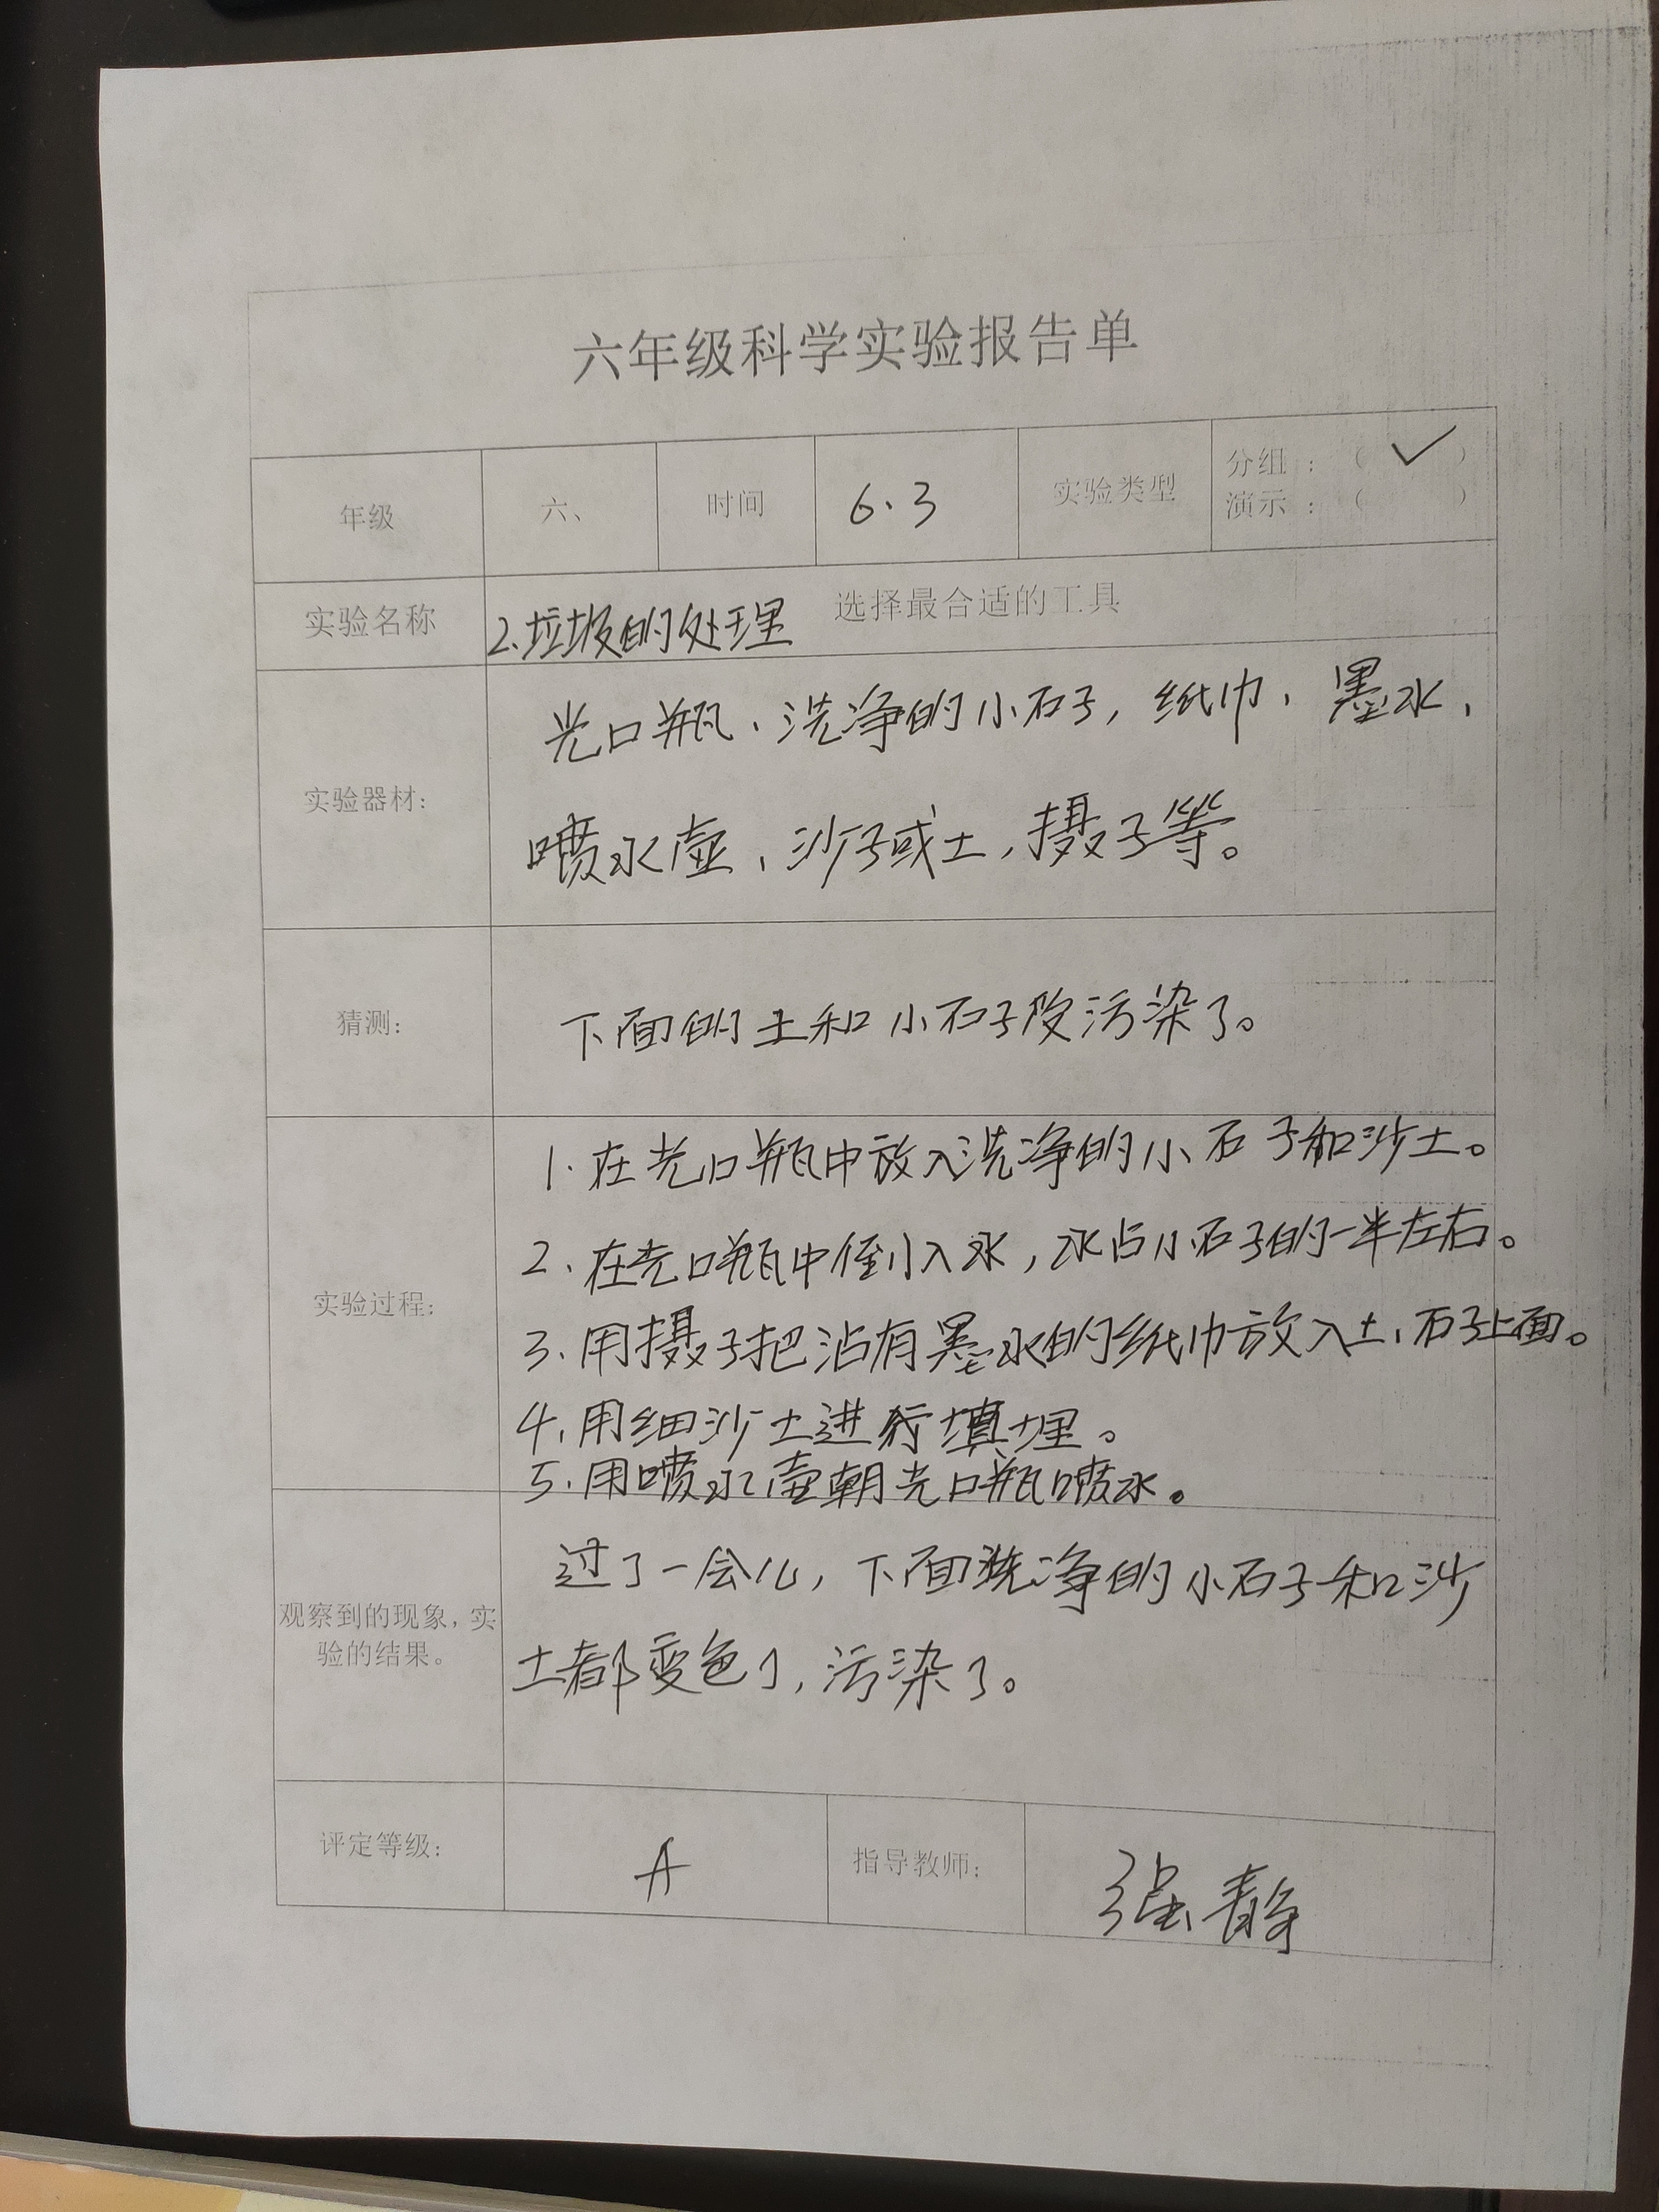 六年级科学实验报告单
年级 六、 时间 6.3 实验类型 分组：（ ✓ ）
演示：（ ）
实验名称 2.垃圾的处理 选择最合适的工具
实验器材：
光口瓶、洗净的小石子，纸巾、墨水、
喷水壶、沙子或土，摄子等。
猜测：
下面的土和小石子没污染了。
实验过程：
1.在光口瓶中放入洗净的小石子和沙土。
2、在光口瓶中倒入水，水占小石子的一半左右。
3、用摄子把沾有墨水的纸巾放入土、石子上面。
4、用细沙土进行填埋。
5、用喷水壶朝光口瓶喷水。
观察到的现象，实
验的结果。
过了一会儿，下面洗净的小石子和沙
土都变色了，污染了。
评定等级： A 指导教师： 强静